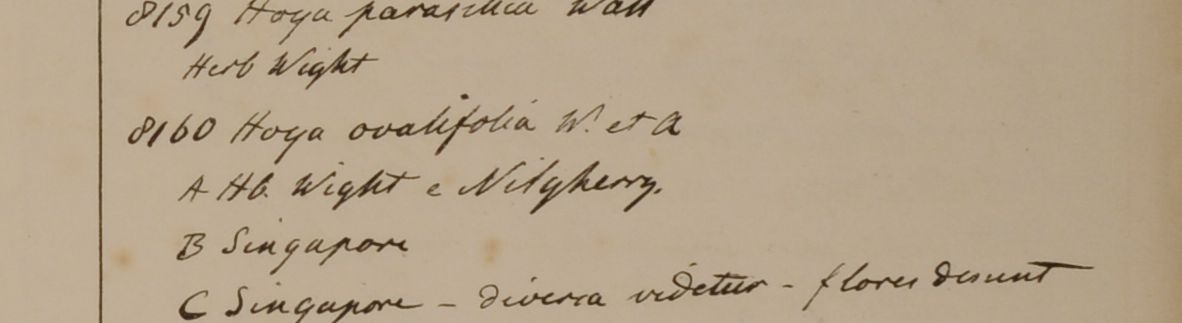 8159 Hoya parasitica Wall
Herb Wight
8160 Hoya ovalifolia W. et A
A Hb. Wight e Nilgherry.
B Singapore
C Singapore - diversa videtur - flores desunt